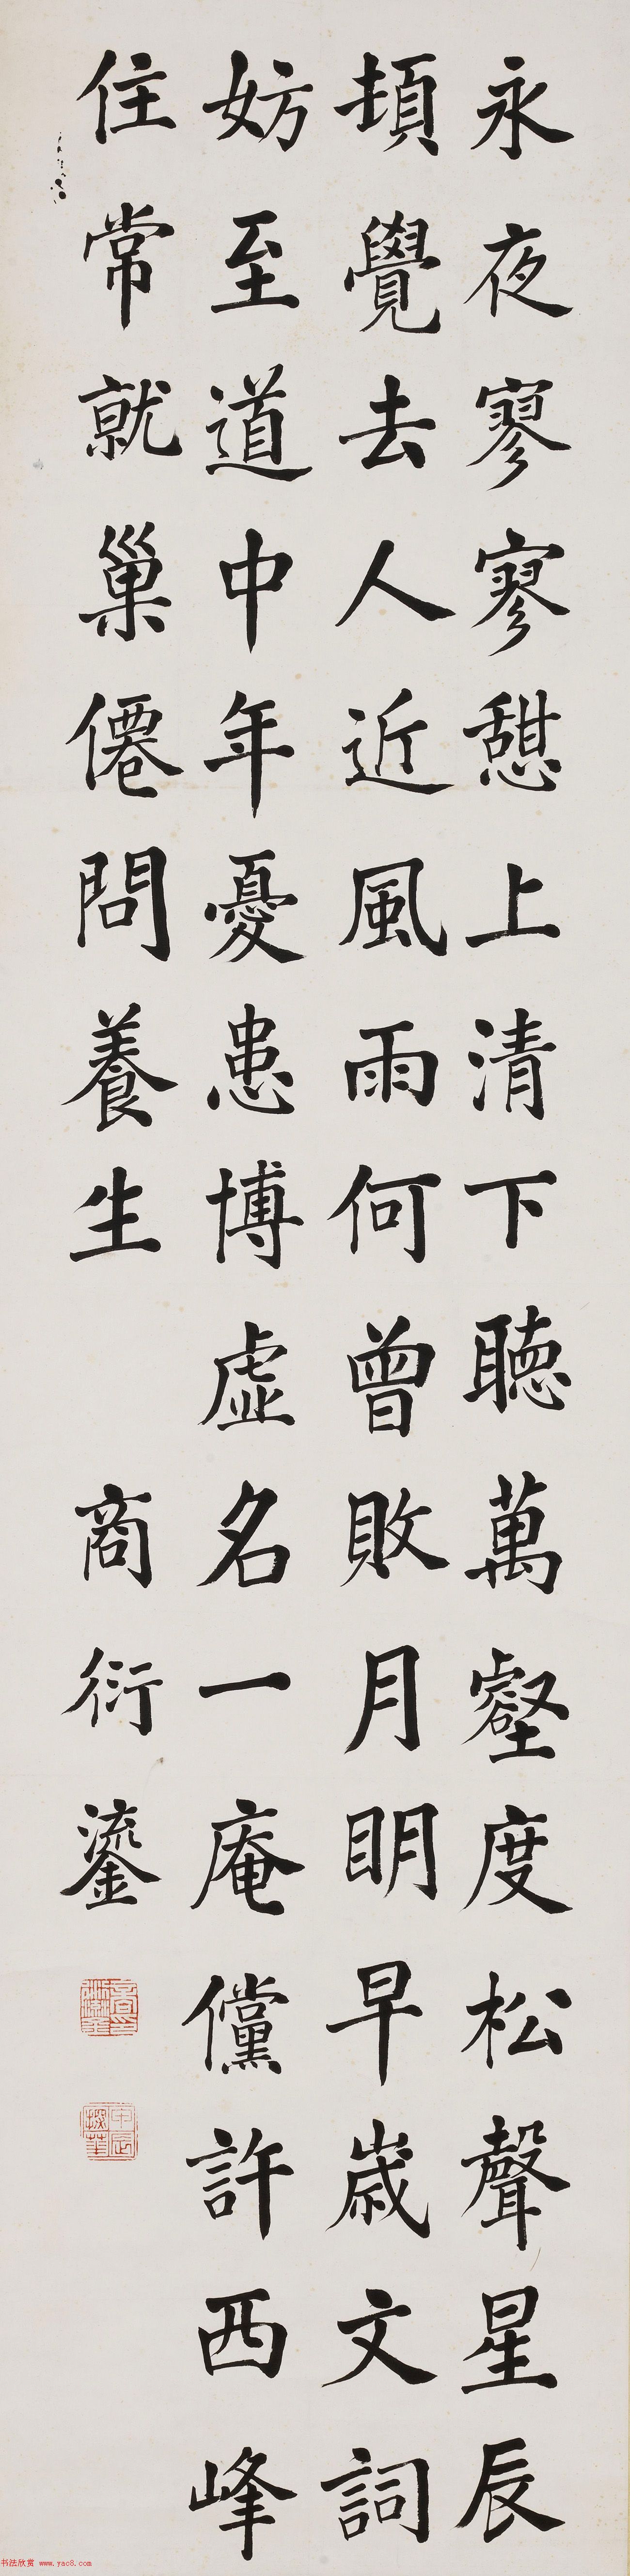 永夜寥寥憇上清下聽萬壑度松聲星辰
頓覺去人近風雨何曾敗月明早歲文詞
妨至道中年憂患博虛名一庵儻許西峰
住常就巢僊問養生
商衍鎏
书法欣赏 www.yac8.com